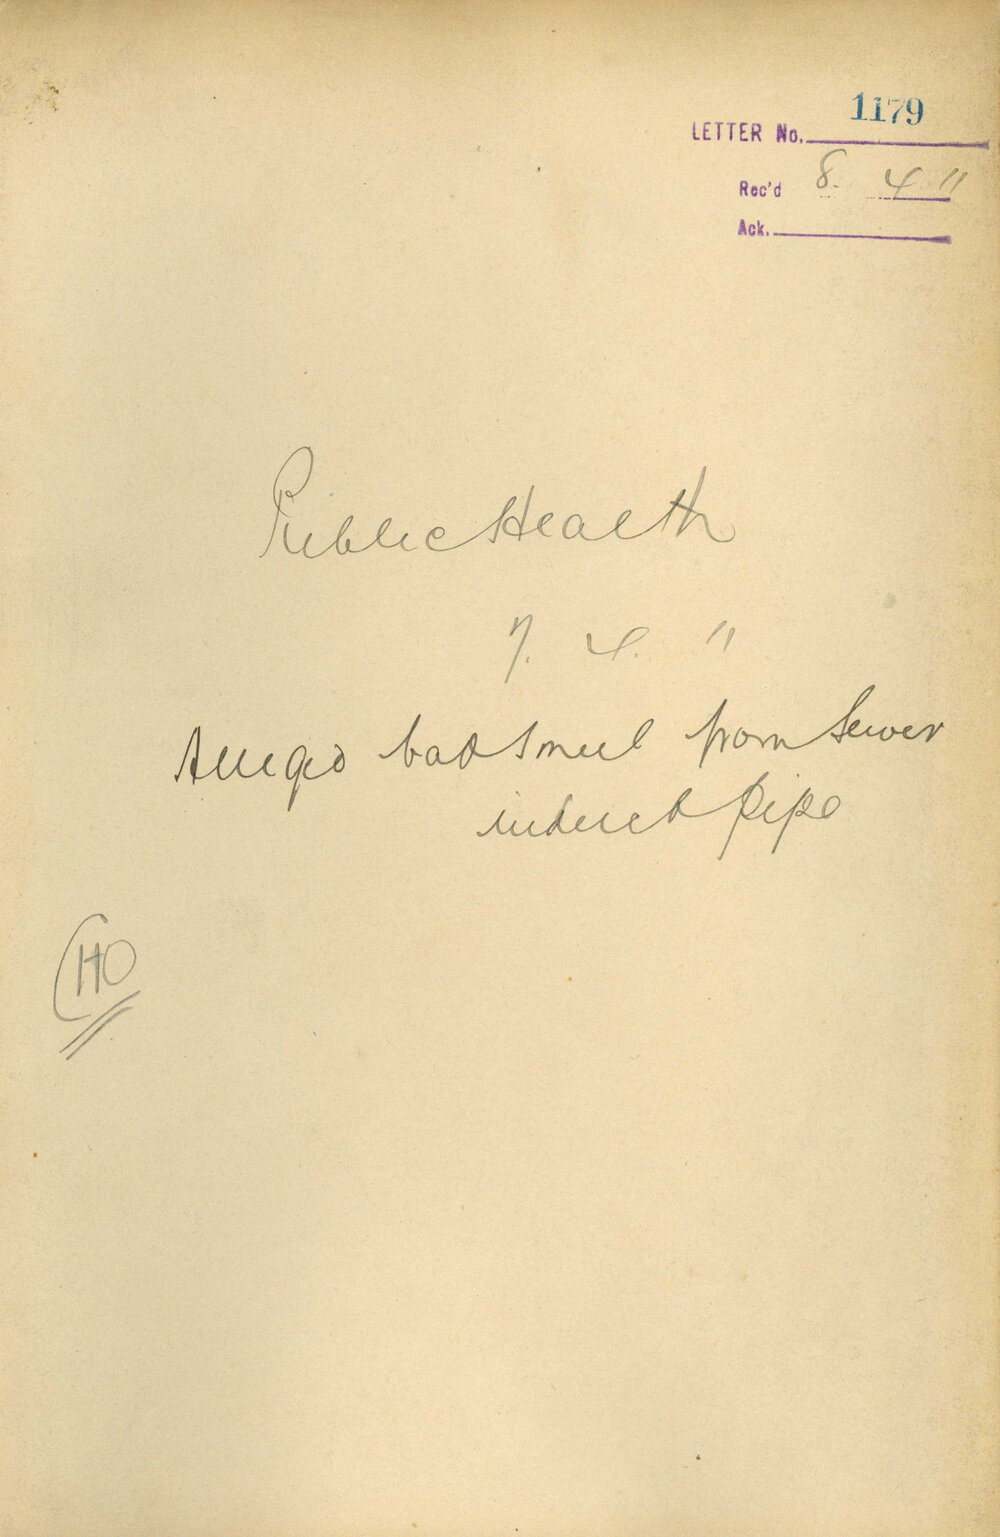 1179
LETTER No.
Rec'd 8. 4 11
Ack.
Public Health
7. 4. 11
Alleged bad smell from Sewer
induct pipe
HO